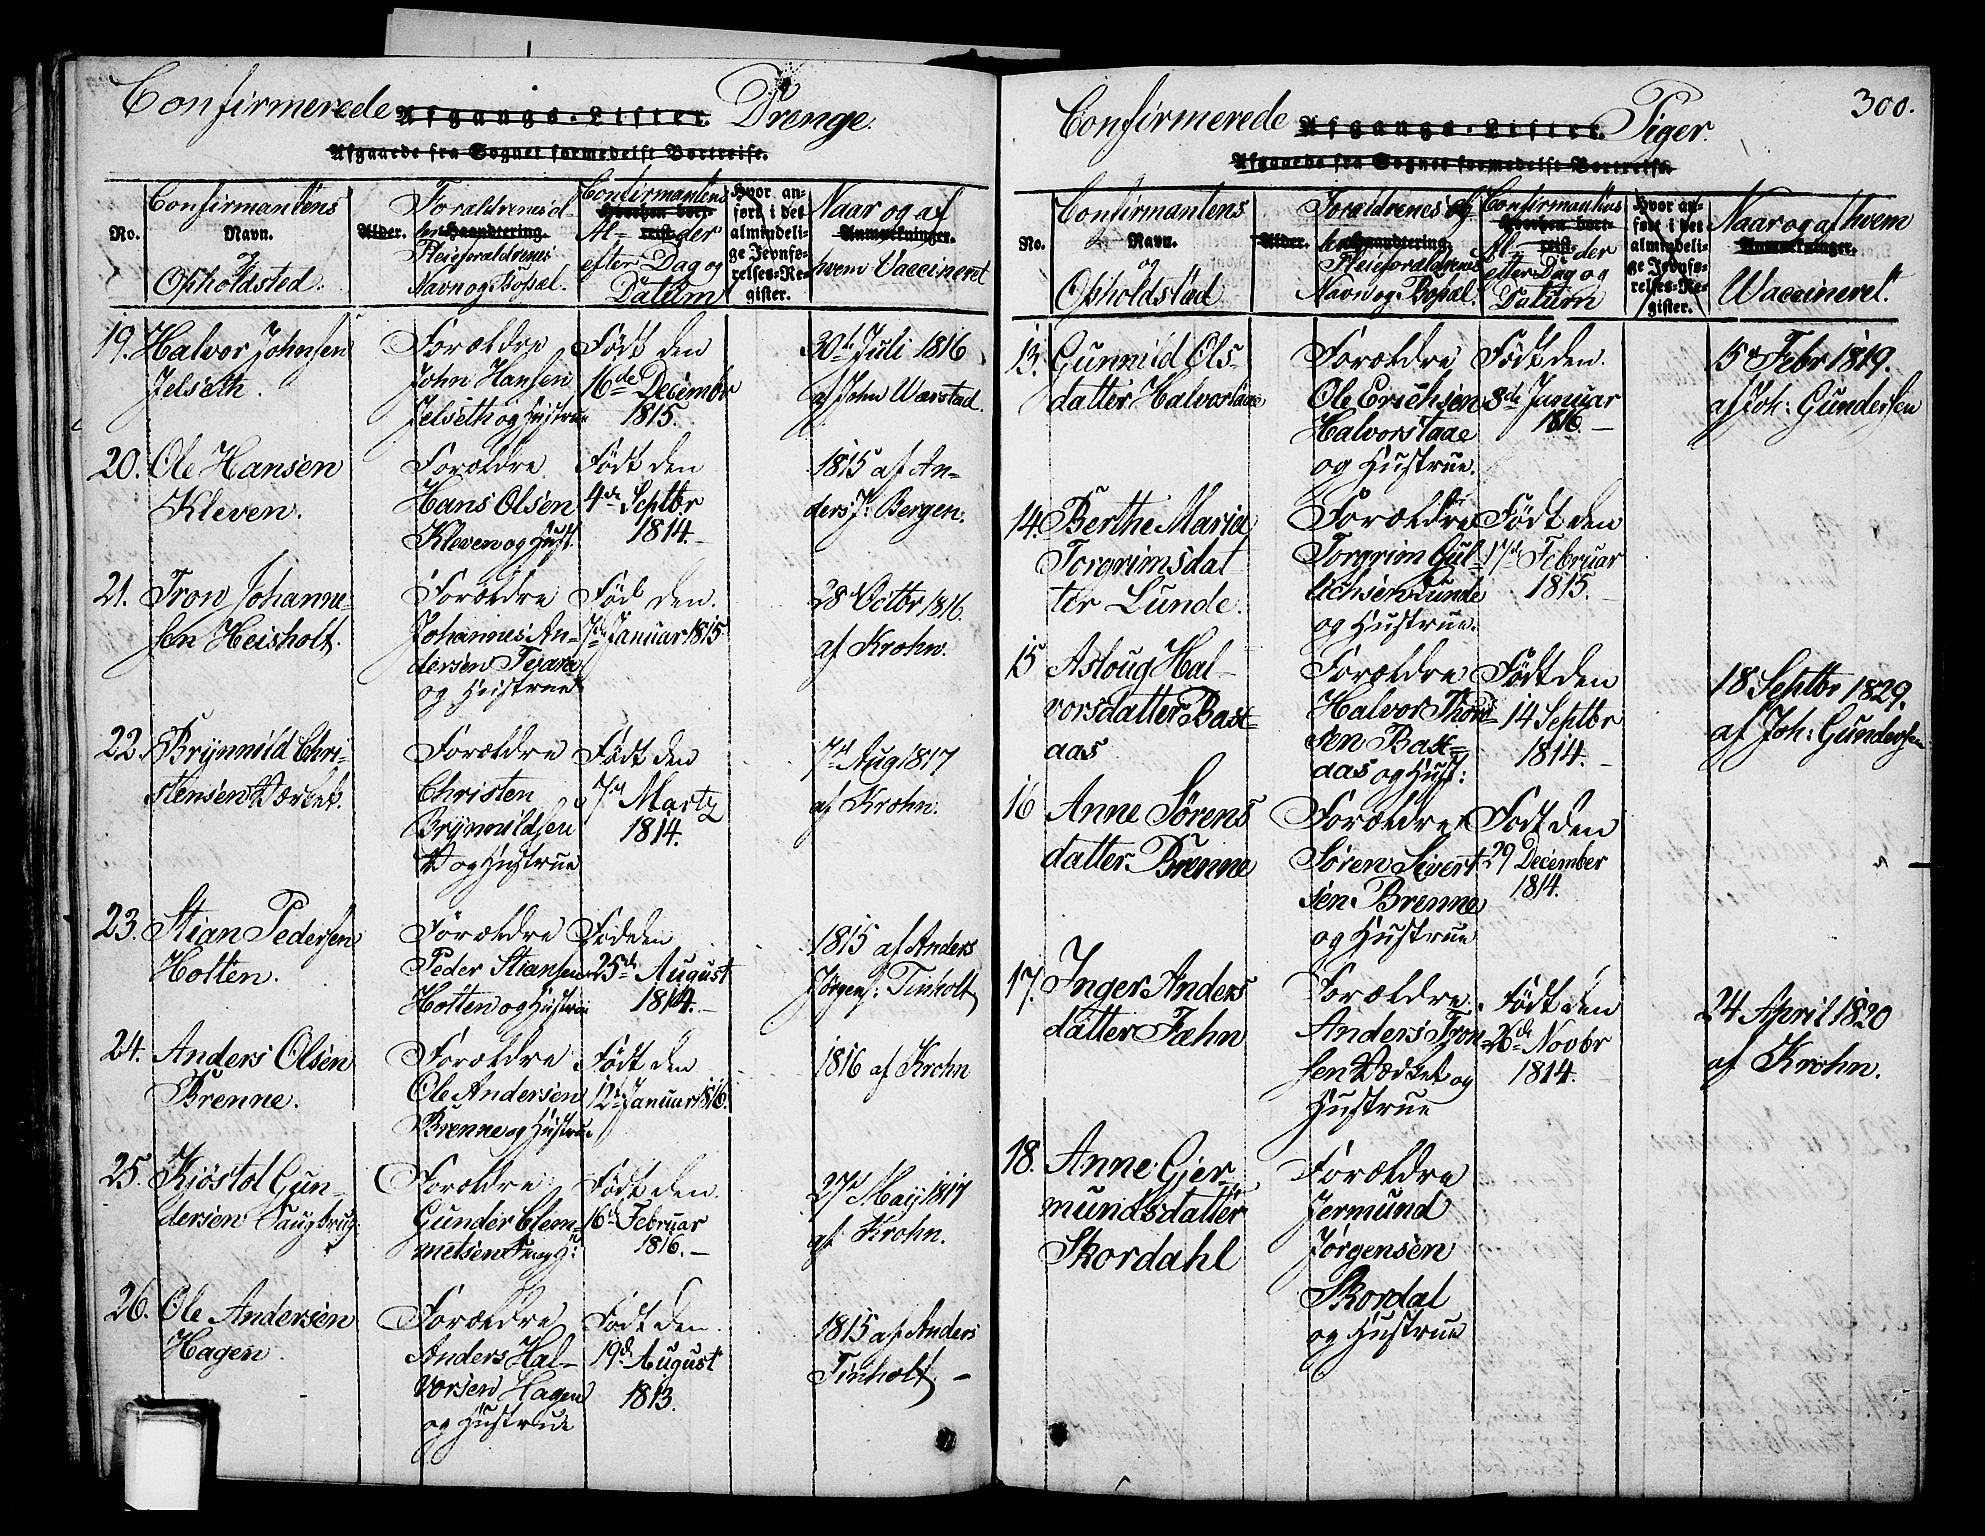 Confirmerede Afgangs-Lister. Drenge.
Afgaaede fra Sognet formedelst Bortreise.
No.
Confirmantens
Navn.
og
Opholdsted.
Alder.
Forældrenes el-
ler Haandtering.
Pleieforældrenes
Navn og Bopæl.
Confirmantens
Hvorhen bort-
Al- reist. der
efter Dag og
Datum
Hvor an-
ført i det
almindeli-
ge Jevnfø-
relses-Re-
gister.
Naar og af
Anmærkninger.
hvem Vaccineret
19. Halvor Johnsen
Jelseth.
Forældre
John Hansen
Jelseth og Hustrue
Født den
16de Decembr
1815.
30te Juli 1816
af John Warstad.
20. Ole Hansen
Kleven.
Forældre
Hans Olsen
Kleven og Hust.
Født den
4de Septbr
1814.
1815 af An-
ders J. Bergen.
21. Tron Johanne-
sen Heisholt.
Forældre
Johannes An-
dersen
og Hustrue
Født den.
7de Januar 1815
28 Octbr 1816.
af Krohn.
22. Brynnild Chri-
stensen Værket.
Forældre
Christen
Brynnildsen
V og Hustrue
Født den
7de Marty
1814.
7de Aug 1817
af Krohn.
23. Stian Pedersen
Hotten.
Forældre
Peder Stiansen
Hotten og Hustrue
Født den
25de August
1814.
1815 af Anders
Jørgens: Tinholt
24. Anders Olsen
Brenne.
Forældre
Ole Andersen
Brenne og Hustrue
Født den
12te Januar 1816.
1816 af Krohn
25. Kjöstol Gun-
dersen
Forældre
Gunder Clem-
metsen
Født den.
16de Februar
1816.
27de May 1817
af Krohn.
26. Ole Andersen
Hagen.
Forældre
Anders Hal-
vorsen Hagen
og Hustrue
Født den.
19de August
1813.
1815 af Anders
Tinholt.
300.
Confirmerede Afgangs-Lister. Piger.
Afgaaede fra Sognet formedelst Bortreise.
No.
Confirmantens
Navn.
og
Opholdstad
Alder.
Forældrenes og
ler Haandtering.
Pleieforældrenes
Navn og Bopæl.
Confirmantens
Hvorhen bort-
Al- reist. der
efter Dag og
Datum
Hvor an-
ført i det
almindeli-
ge Jevnfø-
relses-Re-
gister.
Naar og af hvem
Anmærkninger.
Waccineret.
13. Gunnild Ols-
datter Halvorstaae
Forældre
Ole Erichsen
Halvorstaae
og Hustrue.
Født den.
8de Januar
1816.
5te Febr 1819.
af Joh: Gundersen
14. Berthe Maria
Torgrimsdat
ter Lunde.
Forældre
Torgrim Gul-
lichsen Lunde
og Hustrue.
Født den
17de Februar
1815.
15 Asloug Hal-
vorsdatter Bast-
aas
Forældre
Halvor Thors-
sen Bast-
aas og Hust:
Født den
14 Septbr
1814.
18 Septbr 1829.
af Joh: Gundersen
16 Anne Sørens
datter Brenne
Forældre
Søren Sivert-
sen Brenne
og Hustrue
Født den
29 December
1814.
17. Inger Anders
datter Fæhn
Forældre.
Anders Tron-
sen Værket og
Hustrue
Født den
26de Novbr
1814.
24 April 1820
af Krohn.
18. Anne Gjer-
mundsdatter
Skordahl
Forældre
Jermund
Jørgensen
Skordal
og Hustrue